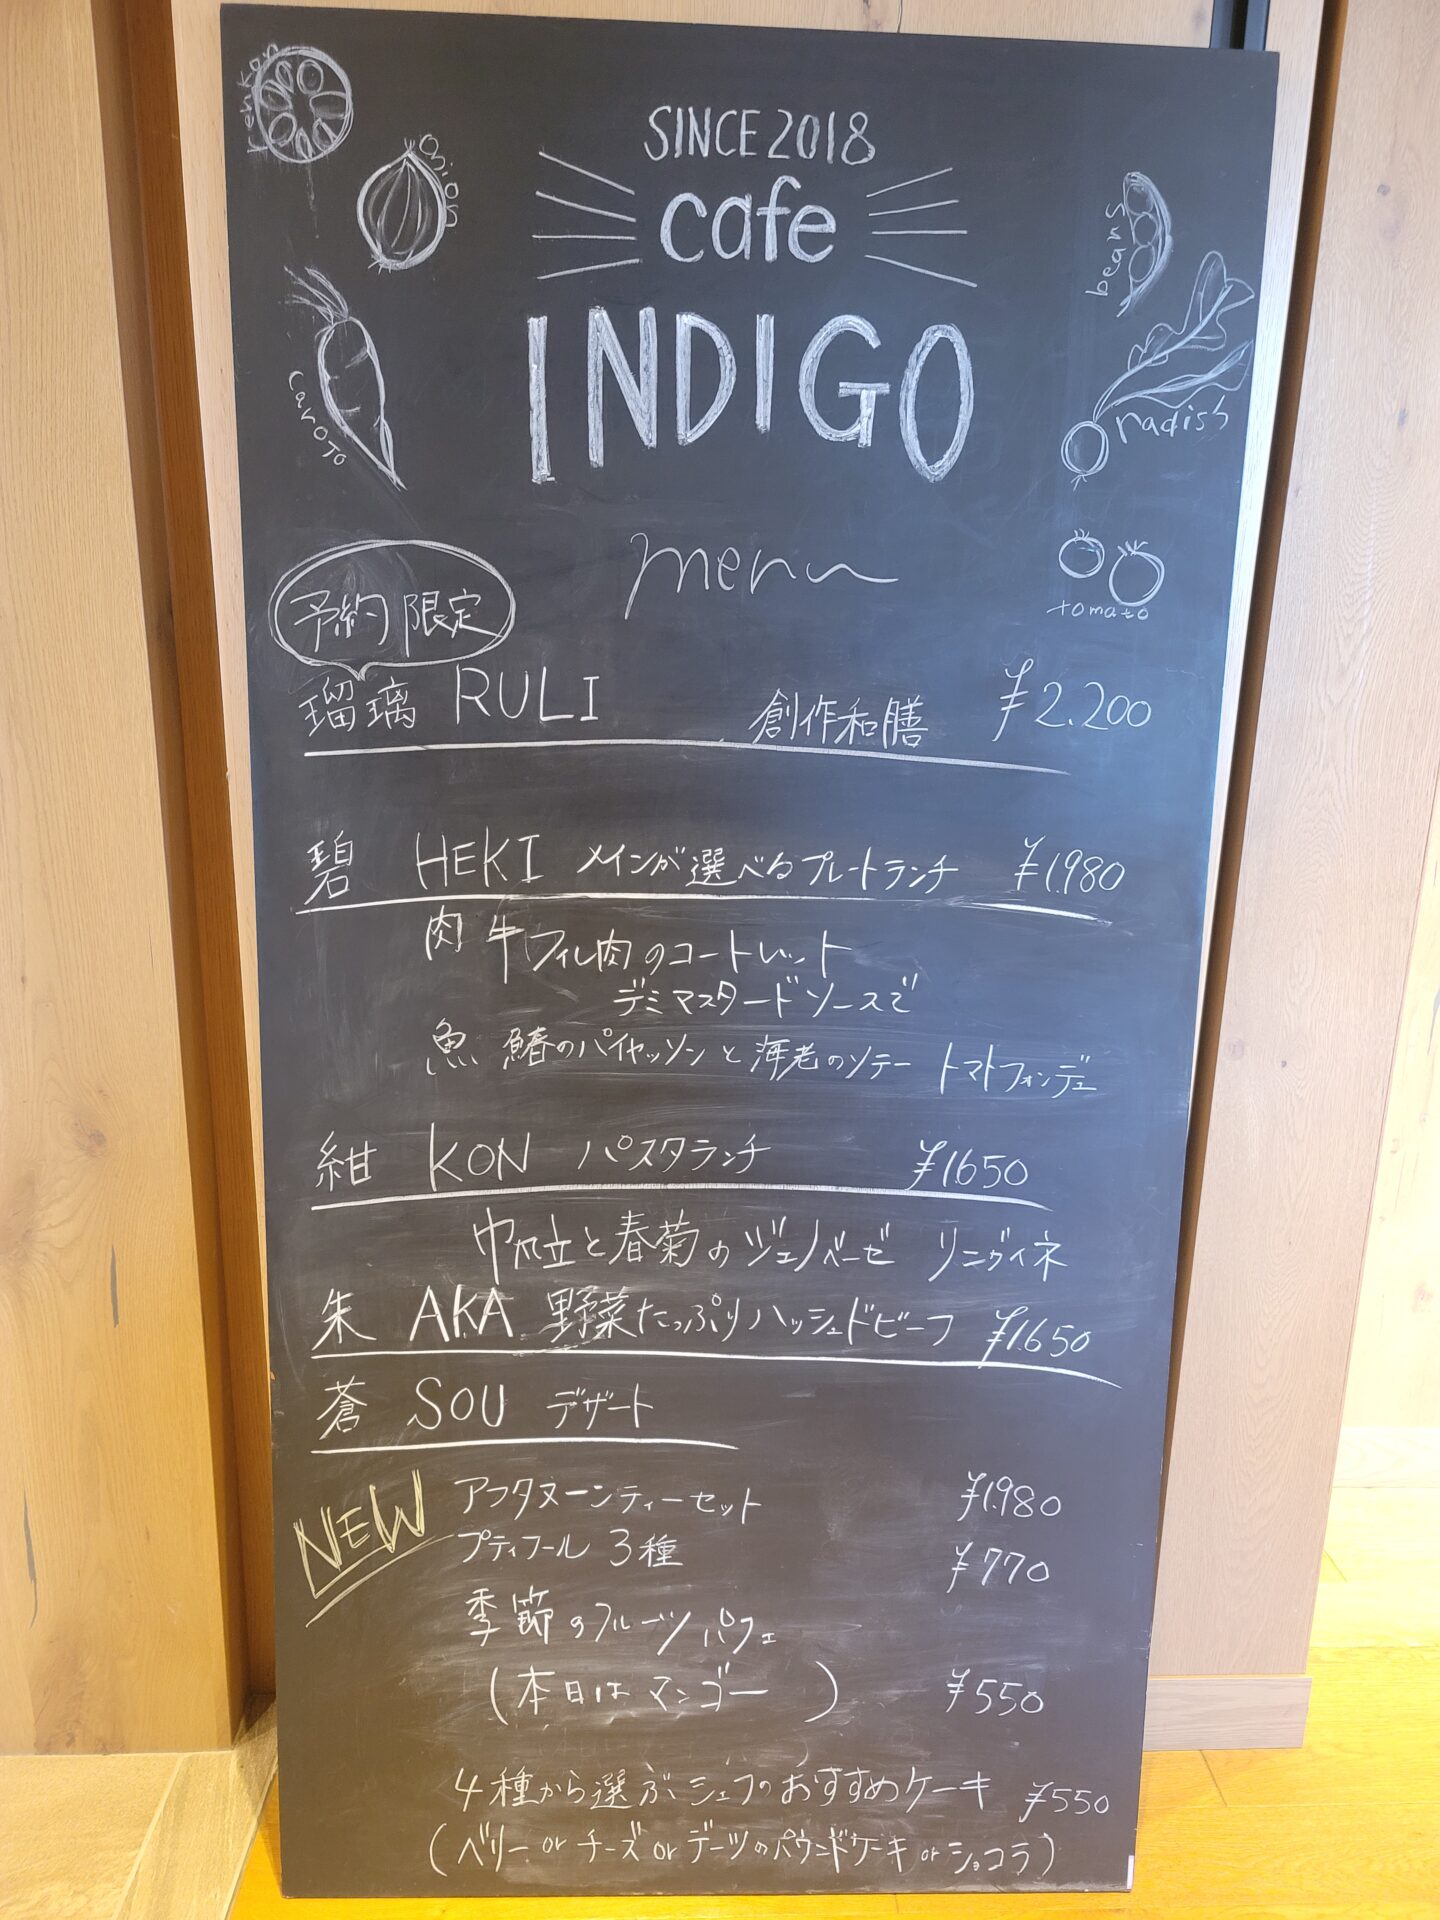 SINCE 2018
cafe
INDIGO
renkon
onion
caroto
beans
radish
tomato
menu
予約限定
瑠璃 RULI 創作和膳 ¥2.200
碧 HEKI メインが選べるプレートランチ ¥1.980
肉 牛フィレ肉のコートレット
デミマスタードソースで
魚 鰆のパイヤッソンと海老のソテー トマトフォンデュ
紺 KON パスタランチ ¥1650
帆立と春菊のジェノベーゼ リングイネ
朱 AKA 野菜たっぷりハッシュドビーフ ¥1.650
蒼 SOU デザート
NEW
アフタヌーンティーセット ¥1.980
プティフール 3種 ¥770
季節のフルーツパフェ
(本日は マンゴー ) ¥550
4種から選ぶシェフのおすすめケーキ ¥550
(ベリー or チーズ or デーツのパウンドケーキ or ショコラ)